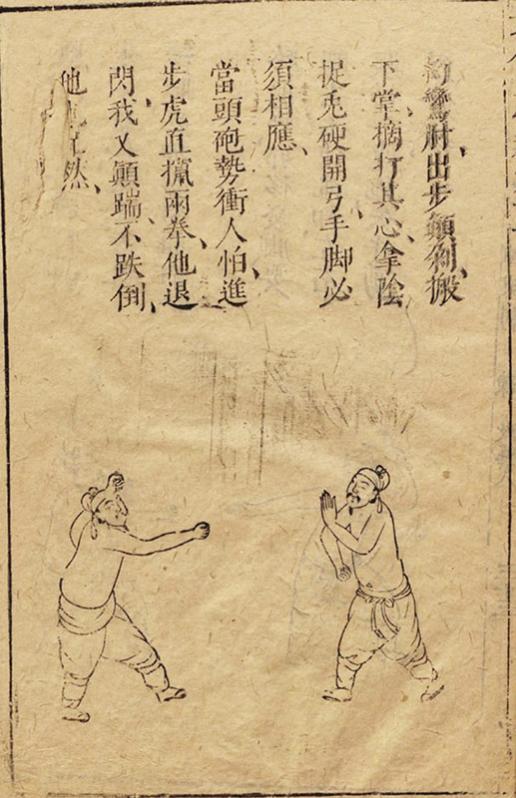 拗鸞肘、出步顛剁、搬
下掌、摘打其心、拿陰
捉兎硬開弓、手脚必
須相應、
當頭砲勢衝人怕、進
步虎直攛兩拳、他退
閃、我又顛踹、不跌倒、
他也然、